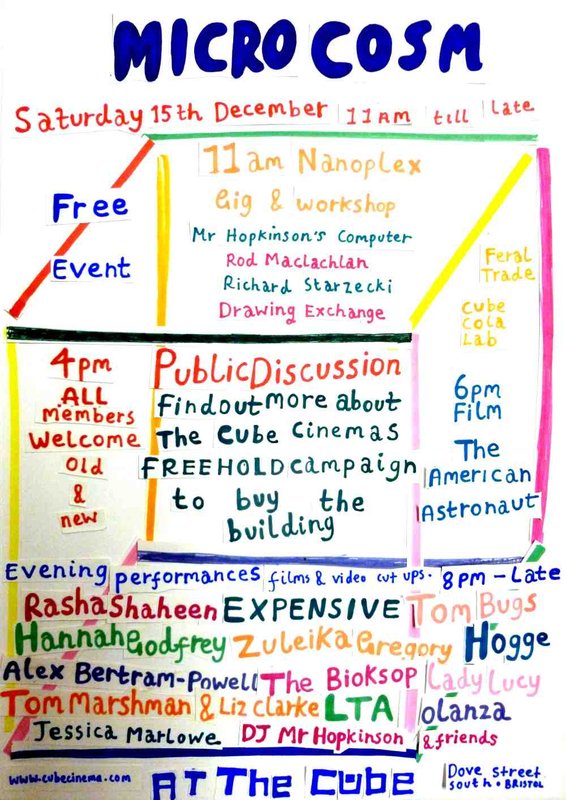 MICROCOSM
Saturday 15th December 11AM till Late
Free
Event
11am Nanoplex
Gig & workshop
Mr Hopkinson's Computer
Rod Maclachlan
Richard Starzecki
Drawing Exchange
Feral
Trade
Cube
Cola
Lab
4pm
ALL
members
Welcome
old
&
new
Public Discussion
find out more about
The Cube Cinemas
FREEHOLD campaign
to buy the
building
6pm
Film
The
American
Astronaut
Evening performances films & video cut ups. 8pm - Late
Rasha Shaheen EXPENSIVE Tom Bugs
Hannah Godfrey Zuleika Gregory Hogge
Alex Bertram-Powell The Bioksop Lady Lucy
Tom Marshman & Liz Clarke LTA olanza
Jessica Marlowe DJ Mr Hopkinson & friends
www.cubecinema.com AT The CUBE Dove street
south • BRISTOL